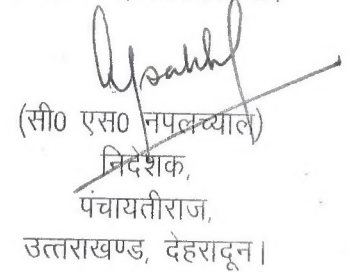 (सी0 एस0 नपलच्याल)
निदेशक,
पंचायतीराज,
उत्तराखण्ड, देहरादून।